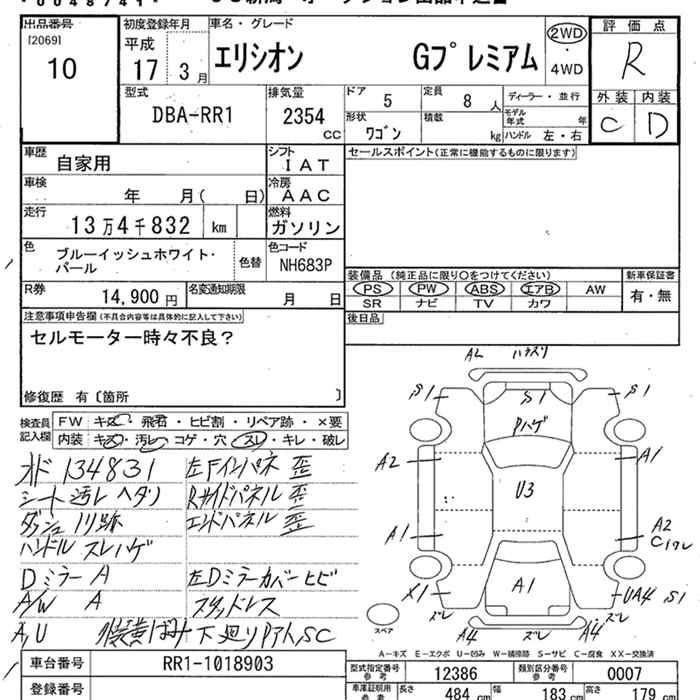 出品番号
[2069]
10
初度登録年月
平成
17 3 月
車名・グレード
エリシオン Gプレミアム
2WD
・
4WD
評価点
R
外装 内装
C D
型式
DBA-RR1
排気量
2354
CC
ドア 5
定員 8 人
ディーラー・並行
形状 ワゴン
積載 kg
モデル年式 年
ハンドル 左・右
車歴
自家用
シフト
IAT
セールスポイント(正常に機能するものに限ります)
車検
年 月( 日)
冷房
AAC
走行
13万4千832 km
燃料
ガソリン
色
ブルーイッシュホワイト・
パール
色替
色コード
NH683P
装備品(純正品に限り○をつけてください)
PS PW ABS エアB AW
SR ナビ TV カワ
新車保証書
有・無
R券
14,900 円
名変通知期限
月 日
後日品
注意事項申告欄(不具合内容等は具体的に記入して下さい)
セルモーター時々不良?
修復歴 有〔箇所 〕
検査員
記入欄
FW キズ・飛石・ヒビ割・リペア跡・×要
内装 キズ・汚レ・コゲ・穴・スレ・キレ・破レ
134831 左Fインパネ 歪
シート汚レ ヘタリ Rサイドパネル 歪
ダッシュ ノリ跡 エンドパネル 歪
ハンドル スレハゲ
Dミラー A 左Dミラーカバーヒビ
A/W A スタッドレス
下廻り
A2
S1 S1 S1
Pハゲ
A2 A1
U3
A1 A2
X1 A1 UA4 S1
ズレ ズレ
A4 ズレ A4
スペア
A-キズ E-エクボ U-凹み W-補修跡 S-サビ C-腐食 XX-交換済
車台番号
RR1-1018903
登録番号
型式指定番号
参考
12386
類別区分番号
参考
0007
車庫証明用
参考
長さ 484 cm
幅 183 cm
高さ 179 cm